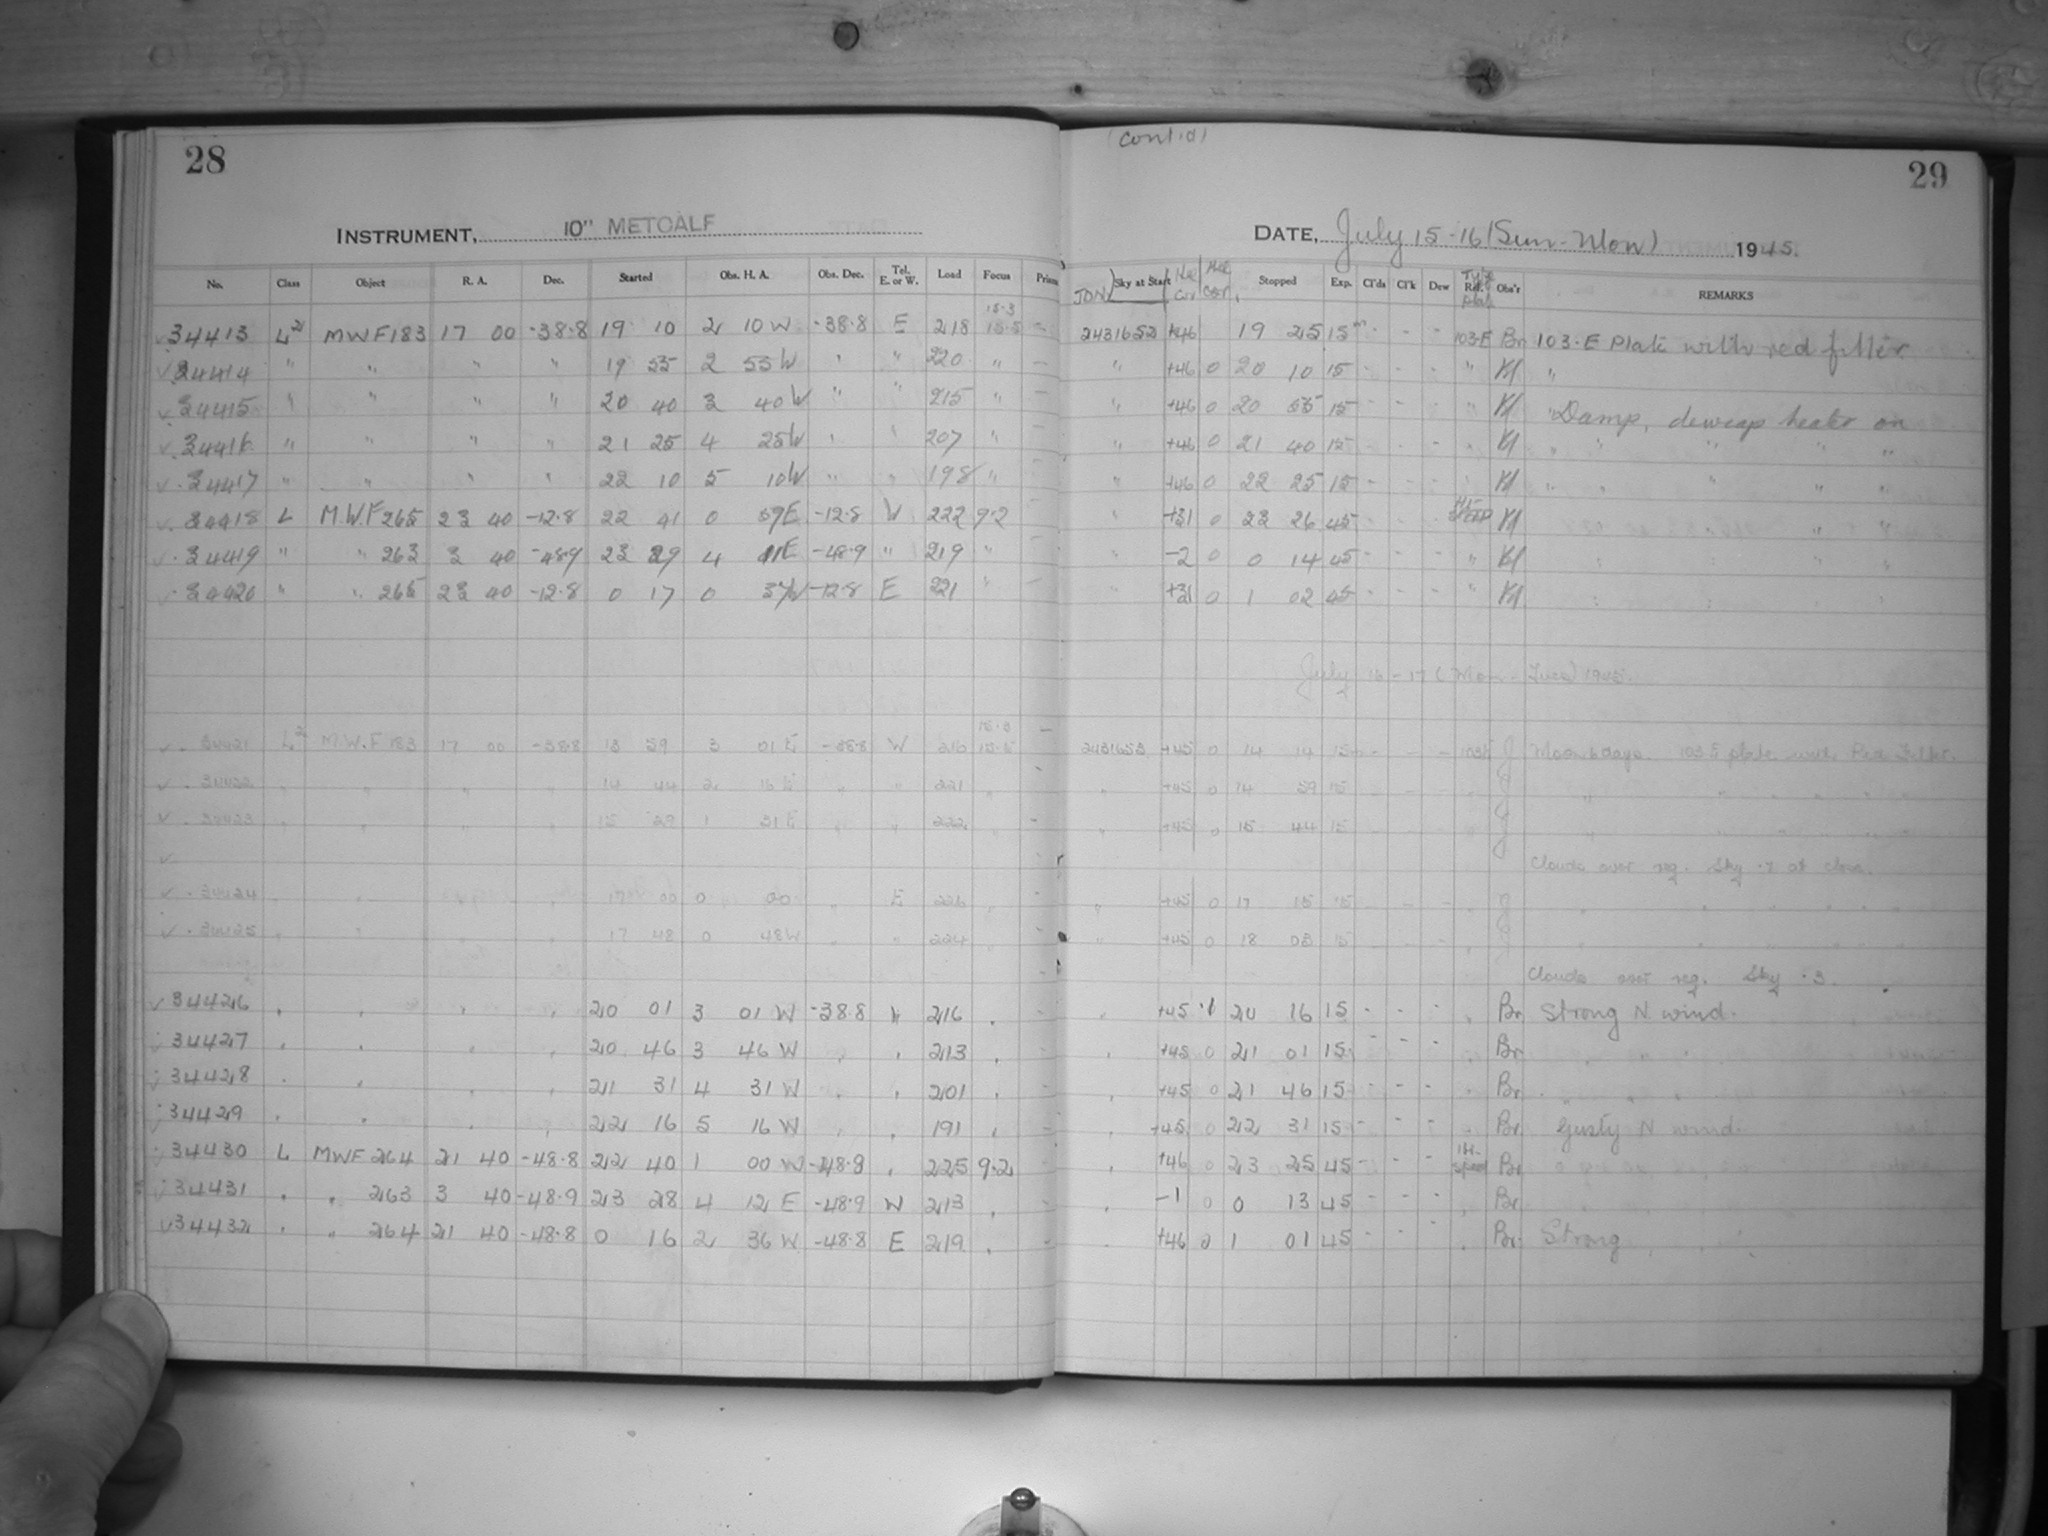 (Cont'd)
28
29
INSTRUMENT, 10" METCALF
DATE, July 15-16 (Sun-Mon) 1945.
No. Class Object R. A. Dec. Started Obs. H. A. Obs. Dec. Tel. E. or W. Load Focus JDN Sky at Start Stopped Exp. Cl'ds Cl'k Dew Obs'r REMARKS
34413 L MWF183 17 00 -38.8 19 10 2 10W -38.8 E 218 15.3 15.5 - 2431652 +46 19 25 15m - - - 103-E Br 103-E Plate with red filter
34414 " " " " 19 55 2 55W " " 220 " - " +46 0 20 10 15 - - - " Kl "
34415 " " " " 20 40 3 40W " " 215 " - " +46 0 20 55 15 - - - " Kl " Damp, dewcap heater on
34416 " " " " 21 25 4 25W " " 207 " - " +46 0 21 40 15 - - - " Kl " " " " "
34417 " " " " 22 10 5 10W " " 198 " - " +46 0 22 25 15 - - - " Kl " " " " "
34418 L M.W.F 265 23 40 -12.8 22 41 0 59E -12.8 W 222 9.2 - " +31 0 23 26 45 - - - Kl " "
34419 " " 263 3 40 -48.9 23 29 4 11E -48.9 " 219 " - " -2 0 0 14 45 - - - " Kl " " " "
34420 " " 265 23 40 -12.8 0 17 0 37W -12.8 E 221 " - " +31 0 1 02 45 - - - " Kl " " " "
July 16-17 (Mon-Tues) 1945.
34421 L M.W.F 183 17 00 -38.8 13 59 3 01E -38.8 W 216 15.3 15.5 - 2431653 +45 0 14 14 15 - - - 103E J 103E plate with Red Filter.
34422 " " " " 14 44 2 16E " " 221 " - " +45 0 14 59 15 - - - " J " " " " "
34423 " " " " 15 29 1 31E " " 222 " - " +45 0 15 44 15 - - - " J " " " " "
Clouds over reg. Sky .7 at close.
34424 " " " " 17 00 0 00 " E 226 " - " +45 0 17 15 15 - - - " J " " " " "
34425 " " " " 17 48 0 48W " " 224 " - " +45 0 18 03 15 - - - " J " " " " "
Clouds over reg. Sky .3.
34426 " " " " 20 01 3 01 W -38.8 " 216 " - " +45 .1 20 16 15 - - - " Br Strong N wind.
34427 " " " " 20 46 3 46 W " " 213 " - " +45 0 21 01 15 - - - " Br " " "
34428 " " " " 21 31 4 31 W " " 201 " - " +45 0 21 46 15 - - - " Br " " "
34429 " " " " 22 16 5 16 W " " 191 " - " +45 0 22 31 15 - - - " Br Gusty N wind.
34430 L MWF 264 21 40 -48.8 22 40 1 00 W -48.8 " 225 9.2 - " +46 0 23 25 45 - - - Br
34431 " " 263 3 40 -48.9 23 28 4 12 E -48.9 W 213 " - " -1 0 0 13 45 - - - " Br " " "
34432 " " 264 21 40 -48.8 0 16 2 36 W -48.8 E 219 " - " +46 0 1 01 45 - - - " Br Strong " "